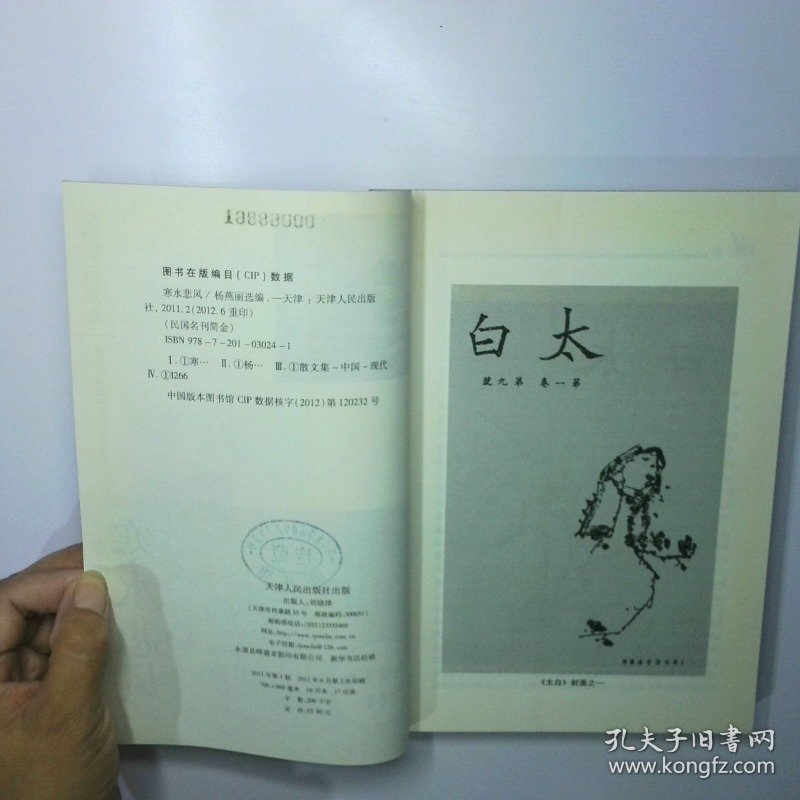 13889000
图书在版编目（CIP）数据
寒水悲风 / 杨燕丽选编．—天津：天津人民出版
社，2011.2（2012.6 重印）
（民国名刊简金）
ISBN 978-7-201-03024-1
Ⅰ.①寒… Ⅱ.①杨… Ⅲ.①散文集－中国－现代
Ⅳ.①I266
中国版本图书馆 CIP 数据核字（2012）第 120232 号
天津人民出版社出版
出版人：刘晓津
（天津市西康路35号 邮政编码：300051）
邮购部电话：（022）23332469
网址：http://www.tjrmcbs.com.cn
永清县晔盛亚胶印有限公司 新华书店经销
2011年第1版 2012年6月第2次印刷
700×960毫米 16开本 17印张
字数：200千字
定价：33.80元
白太
號九第 卷一第
《太白》封面之一
孔夫子旧书网
www.kongfz.com